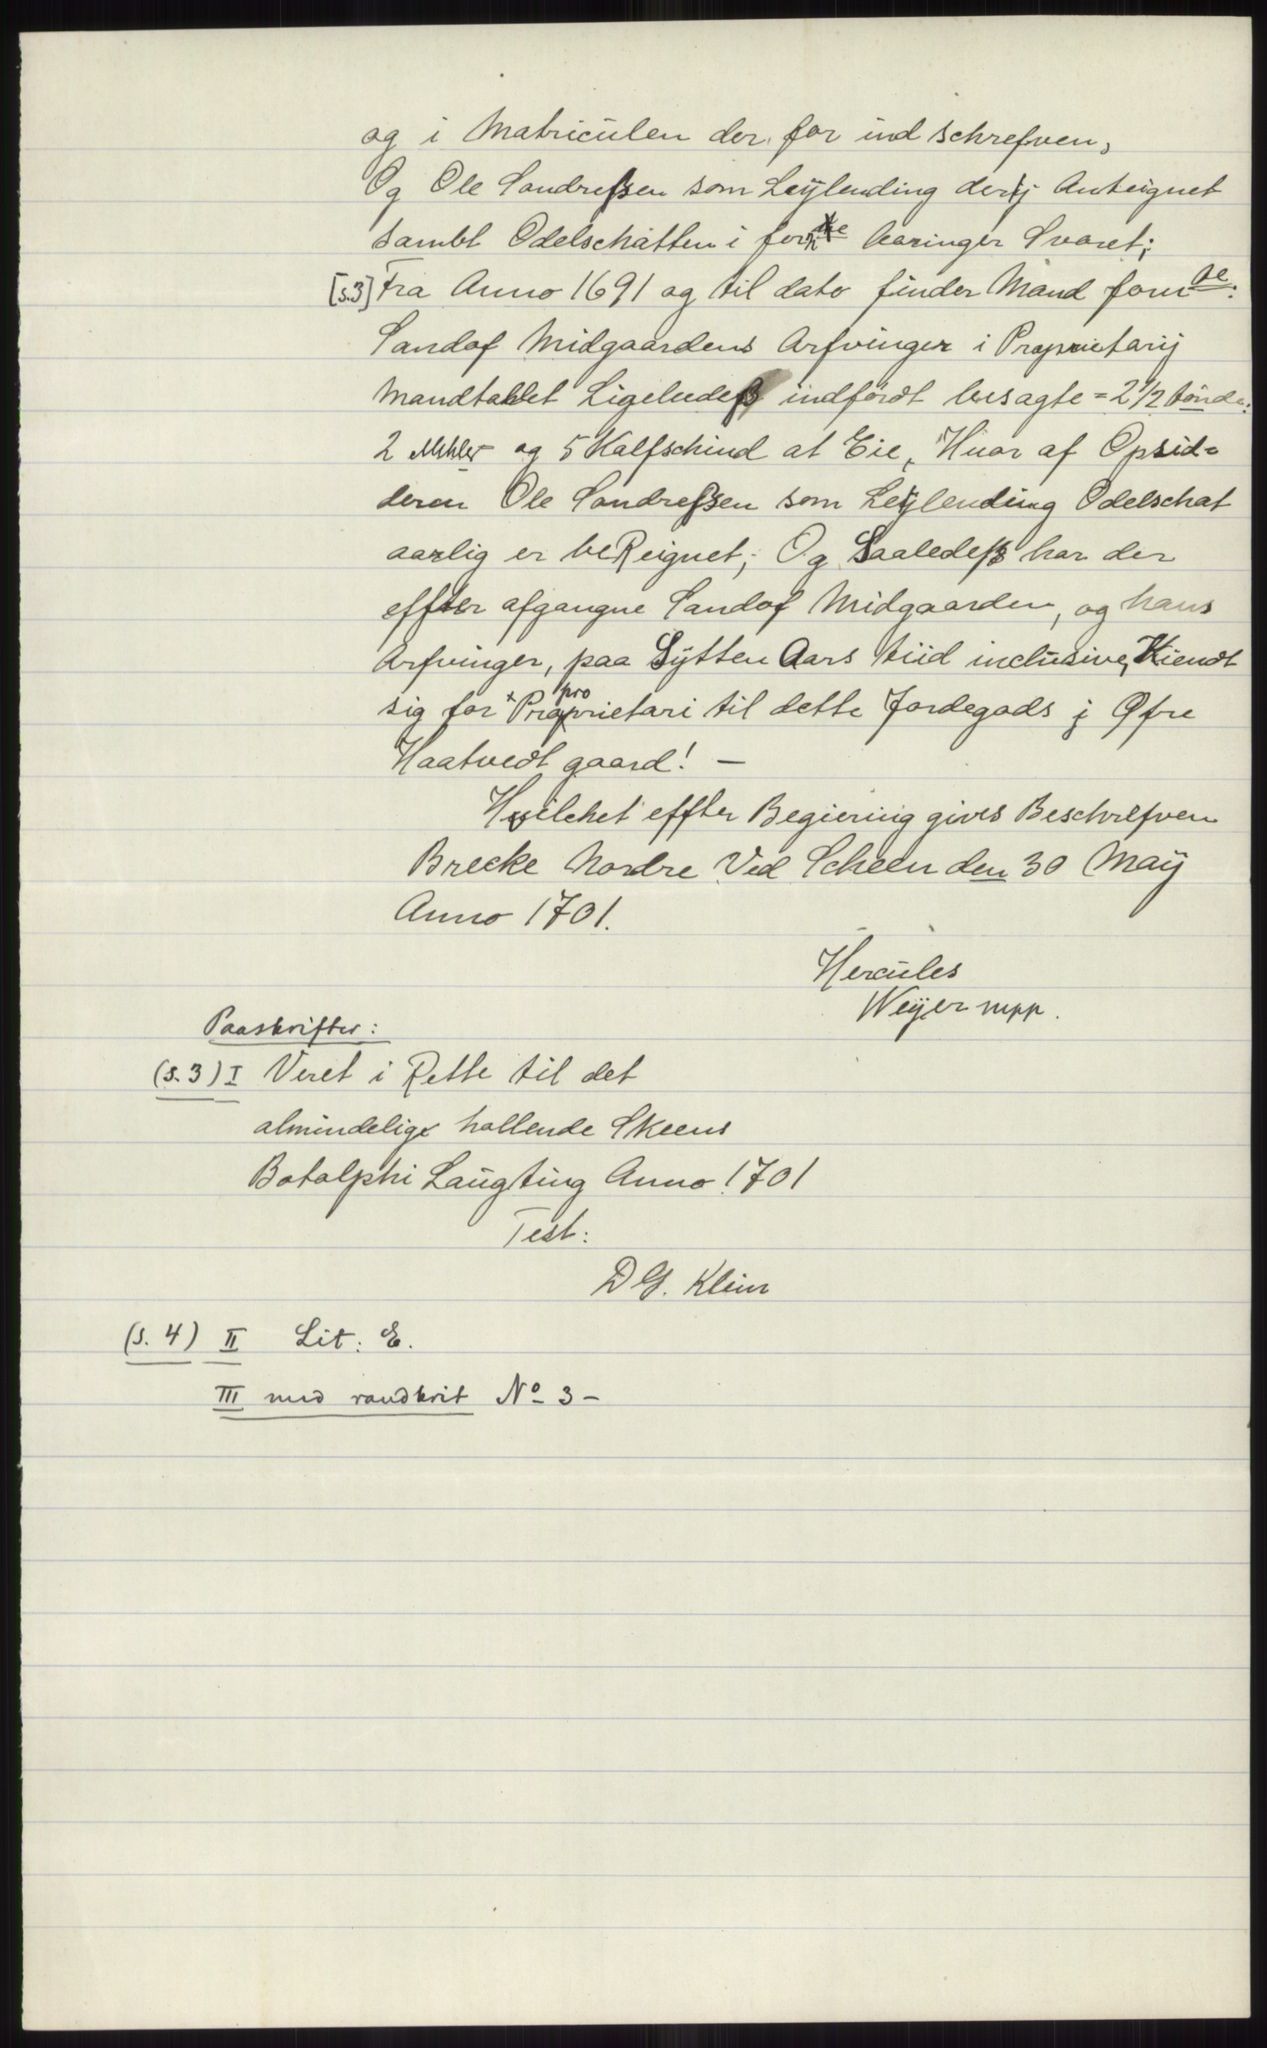 og i Matriculen der for ind schrefven,
Og Ole Sondreßen som Leÿlending derij Anteignet
sambt Odelschatten i forne Aaringer Svaret;
[s.3] Fra Anno 1691 og til dato finder Mand forne:
Sandof Midgaardens Arfvinger i Proprietarij
Mandtallet Ligeledeß indfördt besagte = 2 1/2 tönde:
2 Mehler og 5 Kalfschind at Eie, Huor af Opsid=
deren Ole Sondreßen som Leÿlending Odelschat
aarlig er beReignet; Og Saaledeß har der
effter afgangne Sandof Midgaarden, og hans
Arfvinger, paa Sÿtten Aars tiid inclusive, Kiendt
sig for Proprietari til dette Jordegods j Øfre
Haatvedt gaard! —
Huilchet effter Begiering gives Beschrefven
Brecke Nordre Ved Scheen den 30 Maÿ
Anno 1701.
Hercules
Weÿer mpp.
Paaskrifter:
(s.3) I Veret i Rette til det
almindelige hallende Skeens
Botolphi Laugting Anno 1701
Test:
D G. Klim
(s. 4) II Lit: E.
III med raudkrit No 3 -